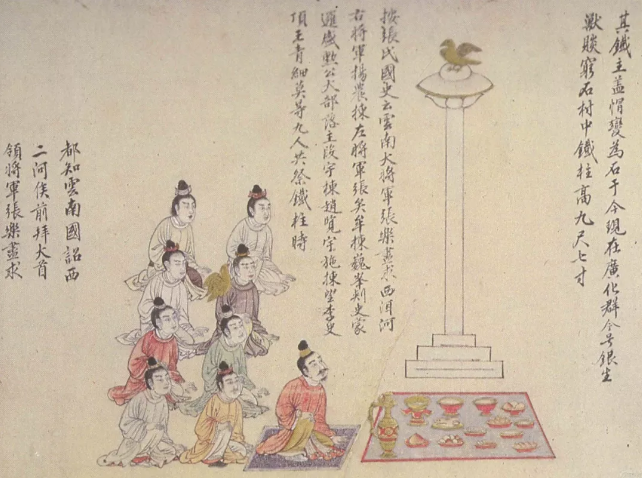 其鐵主盖帽變為石于今現在廣化群今号銀生
獸賧窮石村中鐵柱高九尺七寸
按張氏國史云雲南大將軍張樂盡求西洱河
右將軍楊農棟左將軍張矣牟棟巍峯刾史蒙
邏盛勲公大部落主段宇棟趙覽宇施棟望李史
頂王青細莫等九人共祭鐵柱時
都知雲南國詔西
二河侯前拜大首
領將軍張樂盡求